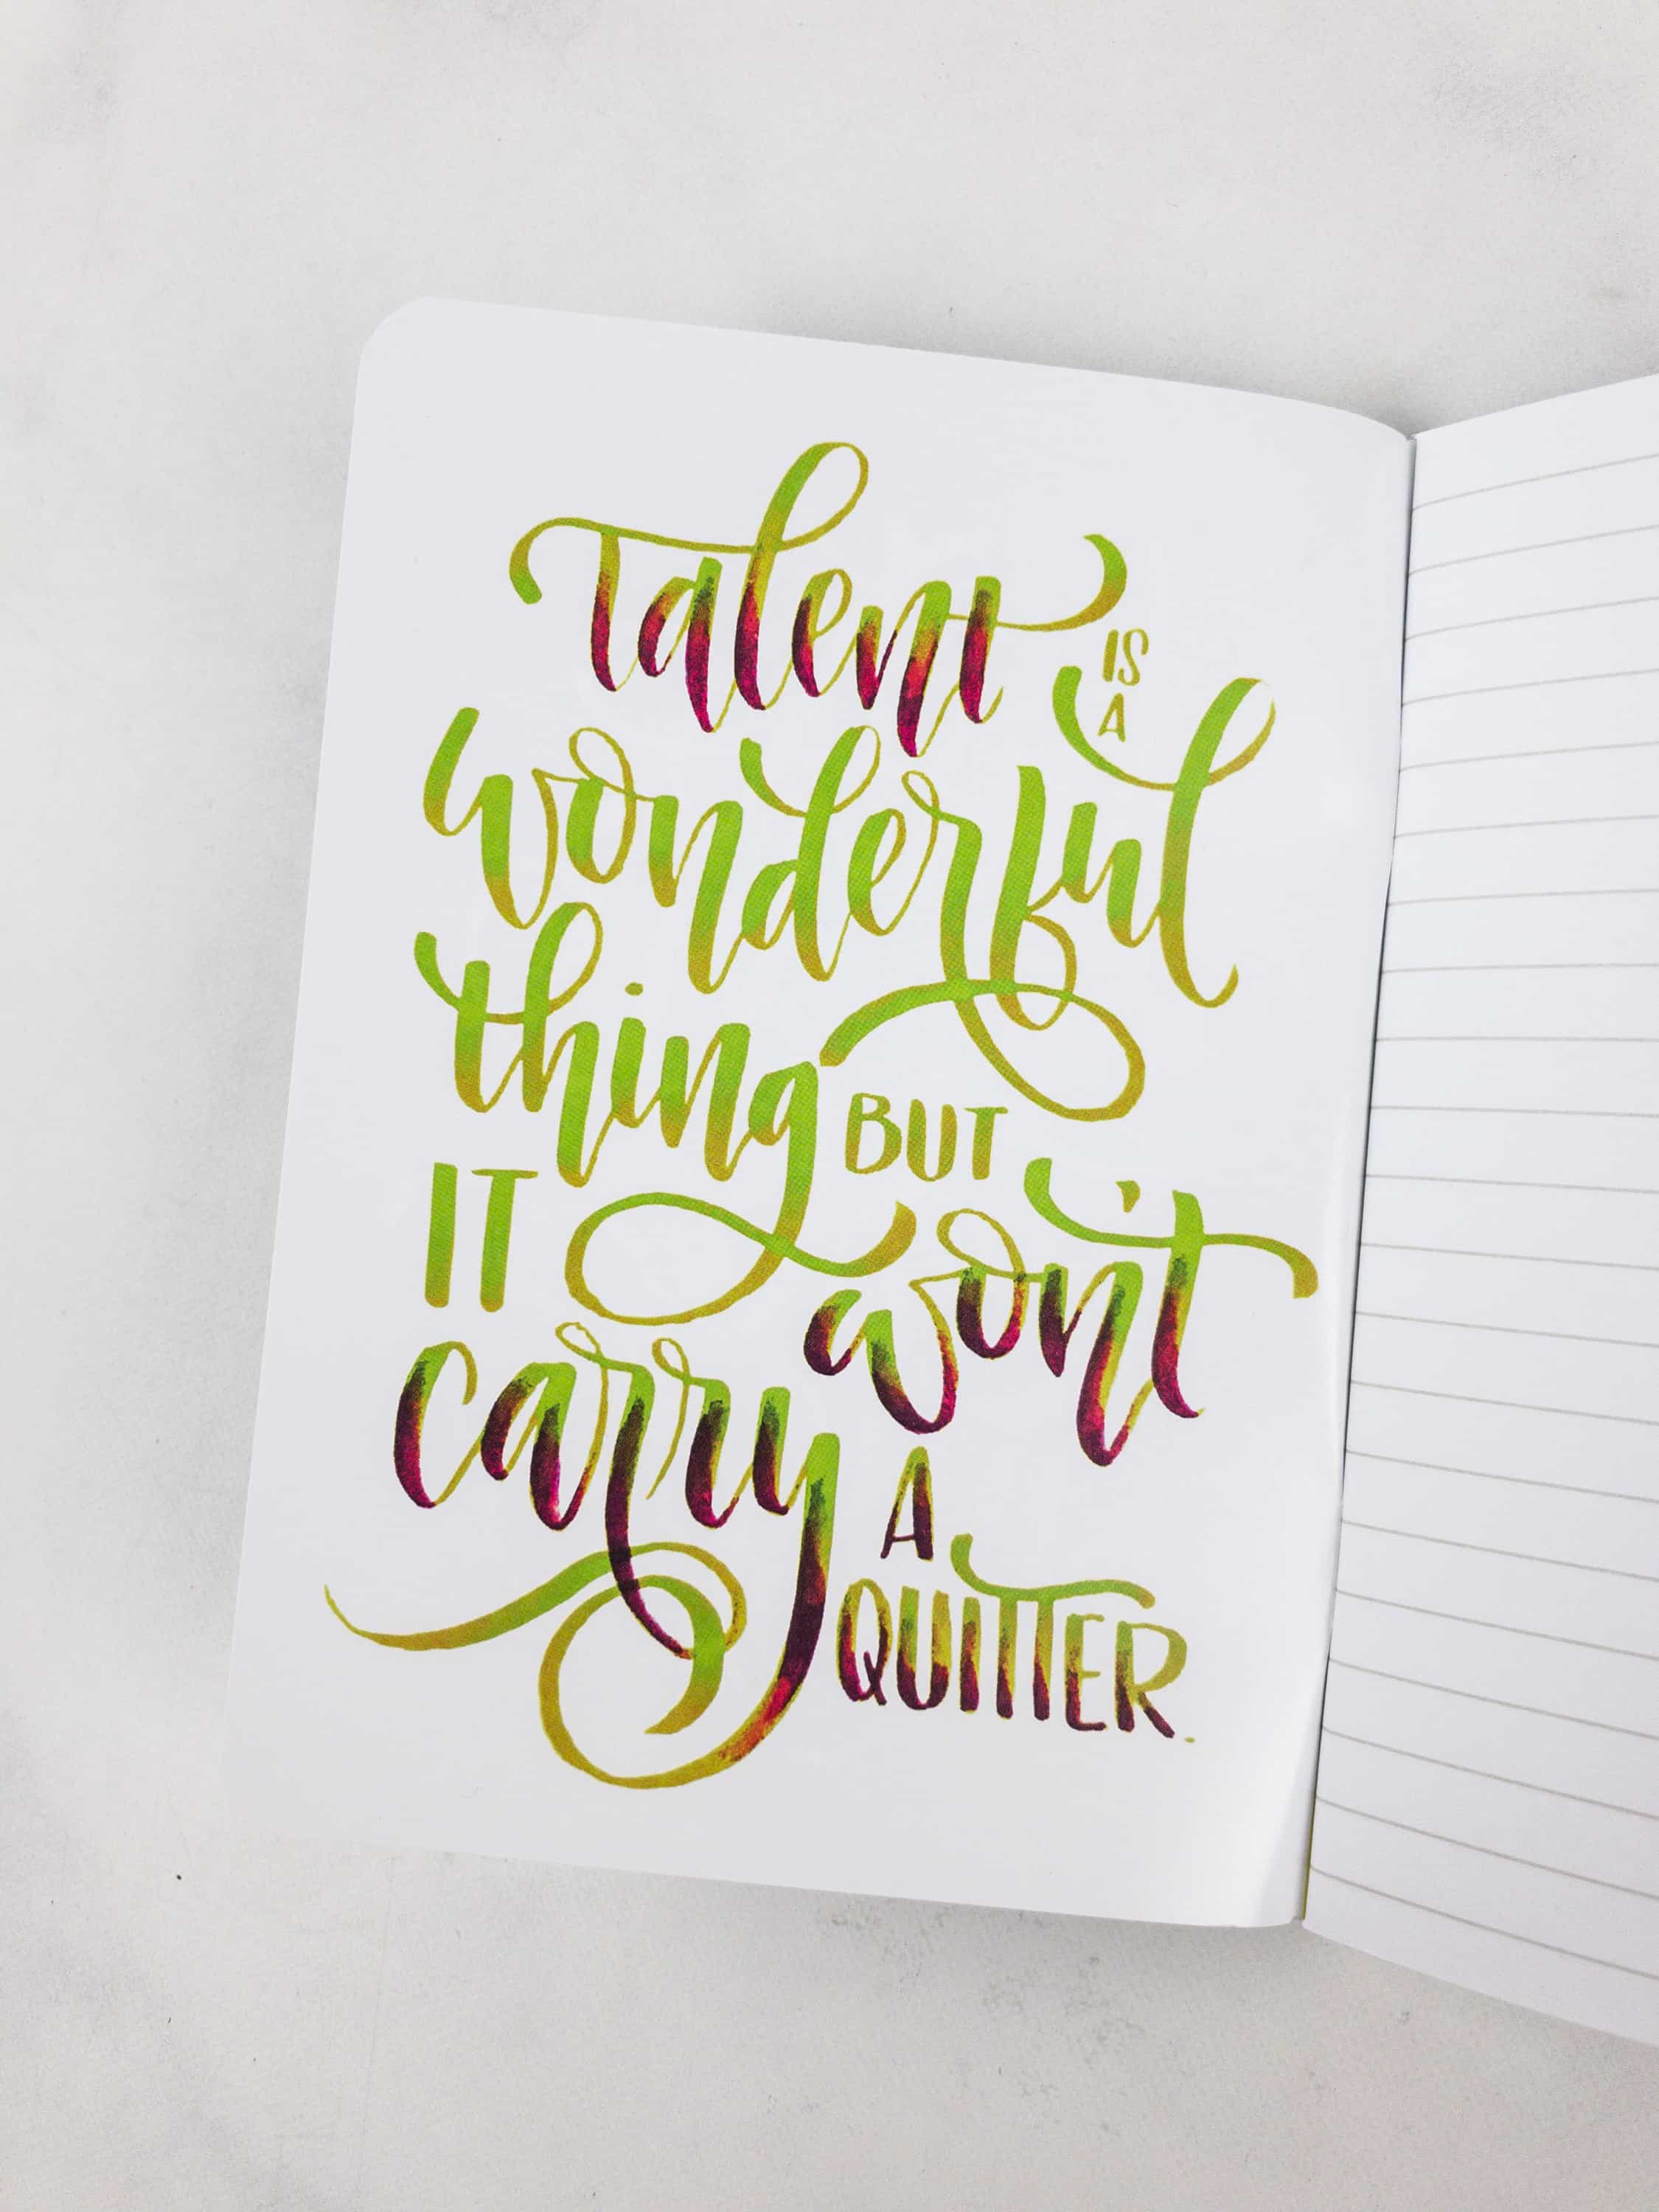 Talent IS A
wonderful
thing BUT
IT won't
carry A
QUITTER.